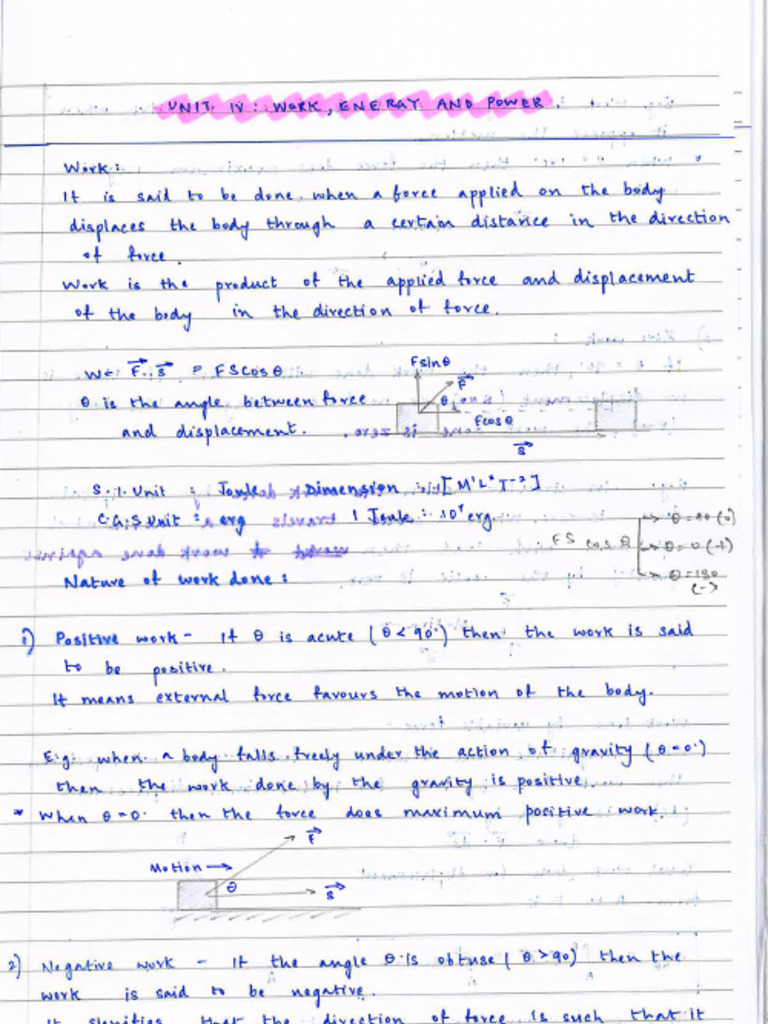 UNIT IV: WORK, ENERGY AND POWER.
Work:
It is said to be done when a force applied on the body
displaces the body through a certain distance in the direction
of force.
Work is the product of the applied force and displacement
of the body in the direction of force.
W = F⃗ . s⃗ = FS cos θ
θ is the angle between force
and displacement.
Fsinθ
F⃗
θ
Fcosθ
s⃗
S.I. Unit : Joule Dimension : [M¹L²T⁻²]
C.G.S Unit : erg 1 Joule : 10⁷ erg.
FS cos θ
θ = 90 (0)
θ = 0 (+)
θ = 180
(-)
Nature of work done :
1) Positive work - If θ is acute (θ < 90°) then the work is said
to be positive.
It means external force favours the motion of the body.
E.g: when a body falls freely under the action of gravity (θ = 0°)
then the work done by the gravity is positive.
* When θ = 0° then the force does maximum positive work.
F⃗
Motion →
θ
s⃗
2) Negative work - If the angle θ is obtuse (θ > 90) then the
work is said to be negative.
It signifies that the direction of force is such that it